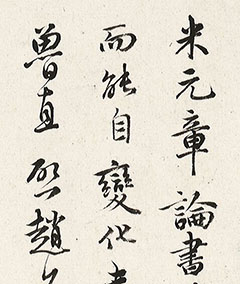 米元章論書
而能自變化
魯直興趙